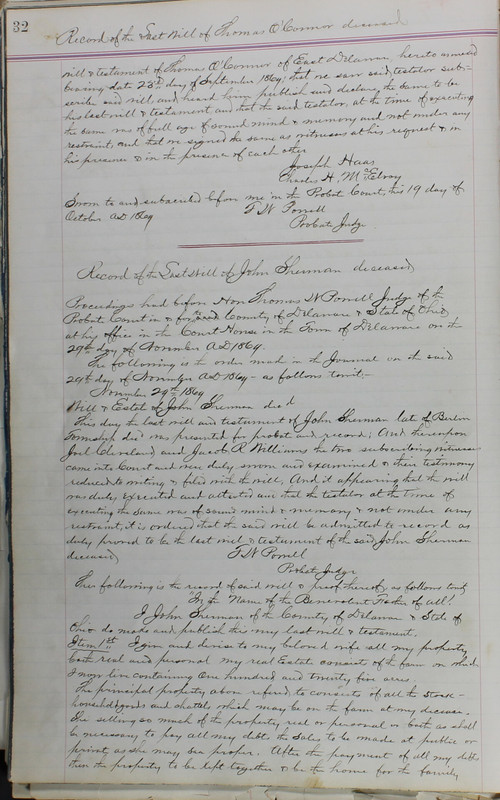 32
Record of the Last Will of Thomas O'Connor deceased
will & testament of Thomas O'Connor of East Delaware hereto annexed
bearing date 23d day of September 1869, that we saw said testator sub-
scribe said will and heard him publish and declare the same to be
his last will & testament and that the said testator, at the time of executing
the same was of full age of sound mind & memory and not under any
restraint, and that we signed the same as witnesses at his request & in
his presence & in the presence of each other
Joseph Haas
Charles H. McElroy
Sworn to and subscribed before me in the Probat Court, this 19 day of
October AD 1869
T W Powell
Probate Judge
Record of the Last Will of John Sherman deceased
Proceedings had before Hon Thomas W Powell Judge of the
Probat Court in & for the County of Delaware & State of Ohio
at his office in the Court House in the Town of Delaware on the
29th day of November AD 1869.
The following is the order made in the Journal on the said
29th day of November AD 1869 - as follows towit:-
November 29th 1869
Will & Estate of John Sherman decd
This day the last will and testament of John Sherman late of Berlin
Township decd was presented for probat and record; And thereupon
Joel Cleveland and Jacob R Williams the two subscribing witnesses
came into Court and were duly sworn and examined & their testimony
reduced to writing & filed with the will. And it appearing that the will
was duly executed and attested and that the testator at the time of
executing the same was of sound mind & memory & not under any
restraint, it is ordered that the said will be admitted to record as
duly proved to be the last will & testament of the said John Sherman
deceased
T W Powell
Probate Judge
The following is the record of said will & proof thereof, as follows towit
"In the Name of the Benevolent Father of all!
I John Sherman of the County of Delaware & State of
Ohio do make and publish this my last will & testament.
Item 1st I give and devise to my beloved wife all my property
both real and personal my real estate consist of the farm on which
I now live containing One hundred and twenty five acres.
The principal property above referd to consists of all the stock-
household goods and chattels which may be on the farm at my decease.
She selling so much of the property real or personal or both as shall
be necessary to pay all my debts the sales to be made at public or
privat as she may see proper. After the payment of all my debts
then the property to be kept together & be the home for the family